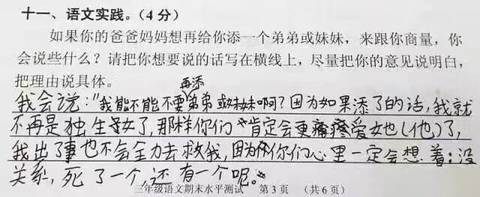 十一、语文实践。(4分)
如果你的爸爸妈妈想再给你添一个弟弟或妹妹，来跟你商量，你
会说些什么？请把你想要说的话写在横线上，尽量把你的意见说明白，
把理由说具体。
再添
我会说：“我能不能不要弟弟或妹妹啊？因为如果添了的话，我就
不再是独生子女了，那样你们肯定会更疼爱她(他)了，
我出了事也不会全力去救我，因为你们心里一定会想着：没
关系，死了一个，还有一个呢。”
三年级语文期末水平测试 第3页 (共6页)